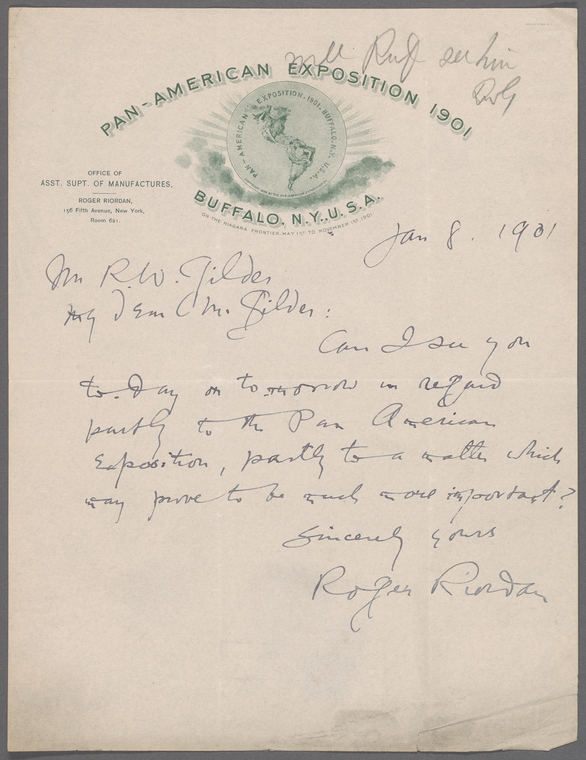 will see him
PAN-AMERICAN EXPOSITION 1901
PAN-AMERICAN EXPOSITION-1901, BUFFALO, N.Y., U.S.A.
BUFFALO, N.Y., U.S.A.
ON THE NIAGARA FRONTIER, MAY 1ST TO NOVEMBER 1ST, 1901.
OFFICE OF
ASST. SUPT. OF MANUFACTURES,
ROGER RIORDAN,
156 Fifth Avenue, New York,
Room 621.
Jan 8. 1901
Mr R. W. Gilder
My Dear Mr. Gilder:
Can I see you
to-day or tomorrow in regard
partly to the Pan American
Exposition, partly to a matter which
may prove to be much more important?
Sincerely yours
Roger Riordan